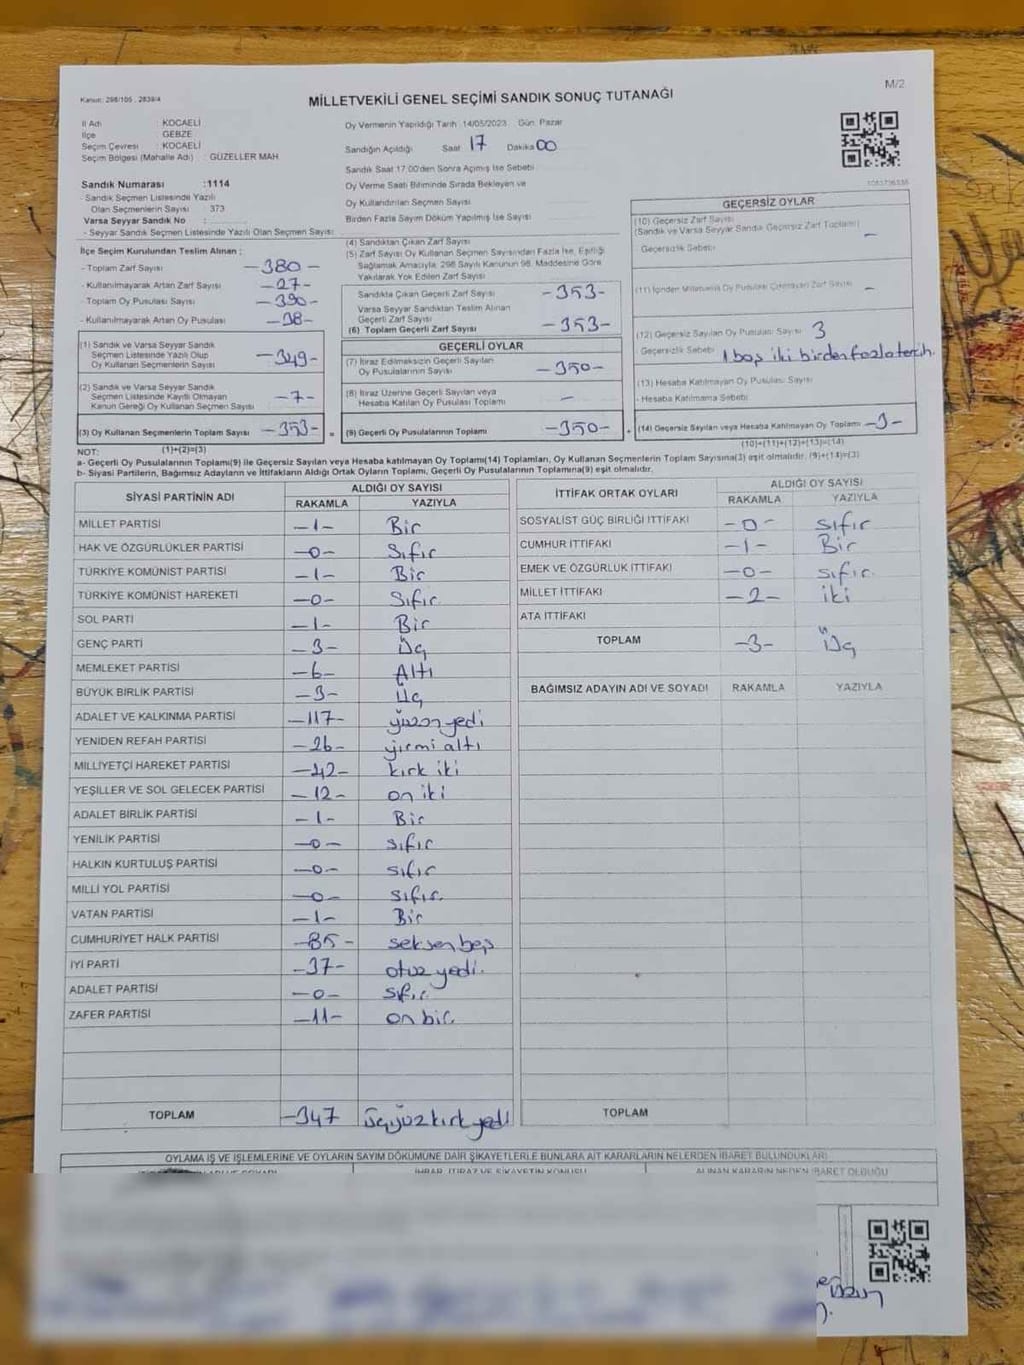 M/2
Kanun: 298/105 , 2839/4
MİLLETVEKİLİ GENEL SEÇİMİ SANDIK SONUÇ TUTANAĞI
İl Adı : KOCAELİ
İlçe : GEBZE
Seçim Çevresi : KOCAELİ
Seçim Bölgesi (Mahalle Adı) : GÜZELLER MAH
Sandık Numarası :1114
- Sandık Seçmen Listesinde Yazılı
Olan Seçmenlerin Sayısı : 373
Varsa Seyyar Sandık No :
- Seyyar Sandık Seçmen Listesinde Yazılı Olan Seçmen Sayısı:
Oy Vermenin Yapıldığı Tarih :14/05/2023 Gün: Pazar
Sandığın Açıldığı Saat 17 Dakika 00
Sandık Saat 17:00'den Sonra Açımış İse Sebebi
Oy Verme Saati Bitiminde Sırada Bekleyen ve
Oy Kullandırılan Seçmen Sayısı
Birden Fazla Sayım Döküm Yapılmış İse Sayısı
İlçe Seçim Kurulundan Teslim Alınan :
- Toplam Zarf Sayısı -380-
- Kullanılmayarak Artan Zarf Sayısı -27-
- Toplam Oy Pusulası Sayısı -390-
- Kullanılmayarak Artan Oy Pusulası -38-
(1) Sandık ve Varsa Seyyar Sandık
Seçmen Listesinde Yazılı Olup
Oy Kullanan Seçmenlerin Sayısı -349-
(2) Sandık ve Varsa Seyyar Sandık
Seçmen Listesinde Kayıtlı Olmayan
Kanun Gereği Oy Kullanan Seçmen Sayısı -7-
(3) Oy Kullanan Seçmenlerin Toplam Sayısı -353-
(4) Sandıktan Çıkan Zarf Sayısı
(5) Zarf Sayısı Oy Kullanan Seçmen Sayısından Fazla İse, Eşitliği
Sağlamak Amacıyla; 298 Sayılı Kanunun 98. Maddesine Göre
Yakılarak Yok Edilen Zarf Sayısı
Sandıkta Çıkan Geçerli Zarf Sayısı -353-
Varsa Seyyar Sandıktan Teslim Alınan
Geçerli Zarf Sayısı
(6) Toplam Geçerli Zarf Sayısı -353-
GEÇERLİ OYLAR
(7) İtiraz Edilmeksizin Geçerli Sayılan
Oy Pusulalarının Sayısı -350-
(8) İtiraz Üzerine Geçerli Sayılan veya
Hesaba Katılan Oy Pusulası Toplamı -
(9) Geçerli Oy Pusulalarının Toplamı -350-
GEÇERSİZ OYLAR
(10) Geçersiz Zarf Sayısı
(Sandık ve Varsa Seyyar Sandık Geçersiz Zarf Toplamı) -
Geçersizlik Sebebi
(11) İçinden Milletvekili Oy Pusulası Çıkmayan Zarf Sayısı -
(12) Geçersiz Sayılan Oy Pusulası Sayısı 3
Geçersizlik Sebebi 1 boş iki birden fazla tercih.
(13) Hesaba Katılmayan Oy Pusulası Sayısı
- Hesaba Katılmama Sebebi
(14) Geçersiz Sayılan veya Hesaba Katılmayan Oy Toplamı -3-
NOT: (1)+(2)=(3) (10)+(11)+(12)+(13)=(14)
a- Geçerli Oy Pusulalarının Toplamı(9) ile Geçersiz Sayılan veya Hesaba katılmayan Oy Toplam(14) Toplamları, Oy Kullanan Seçmenlerin Toplam Sayısına(3) eşit olmalıdır. (9)+(14)=(3)
b- Siyasi Partilerin, Bağımsız Adayların ve İttifakların Aldığı Ortak Oyların Toplamı, Geçerli Oy Pusulalarının Toplamına(9) eşit olmalıdır.
SİYASİ PARTİNİN ADI ALDIĞI OY SAYISI
RAKAMLA YAZIYLA
MİLLET PARTİSİ -1- Bir
HAK VE ÖZGÜRLÜKLER PARTİSİ -0- Sıfır
TÜRKİYE KOMÜNİST PARTİSİ -1- Bir
TÜRKİYE KOMÜNİST HAREKETİ -0- Sıfır
SOL PARTİ -1- Bir
GENÇ PARTİ -3- Üç
MEMLEKET PARTİSİ -6- Altı
BÜYÜK BİRLİK PARTİSİ -3- Üç
ADALET VE KALKINMA PARTİSİ -117- yüzon yedi
YENİDEN REFAH PARTİSİ -26- yirmi altı
MİLLİYETÇİ HAREKET PARTİSİ -42- kırk iki
YEŞİLLER VE SOL GELECEK PARTİSİ -12- on iki
ADALET BİRLİK PARTİSİ -1- Bir
YENİLİK PARTİSİ -0- sıfır
HALKIN KURTULUŞ PARTİSİ -0- sıfır
MİLLİ YOL PARTİSİ -0- sıfır.
VATAN PARTİSİ -1- Bir
CUMHURİYET HALK PARTİSİ -85- seksen beş
İYİ PARTİ -37- otuz yedi.
ADALET PARTİSİ -0- sıfır
ZAFER PARTİSİ -11- on bir.
TOPLAM -347 üçyüzkırk yedi
İTTİFAK ORTAK OYLARI ALDIĞI OY SAYISI
RAKAMLA YAZIYLA
SOSYALİST GÜÇ BİRLİĞİ İTTİFAKI -0- sıfır
CUMHUR İTTİFAKI -1- Bir
EMEK VE ÖZGÜRLÜK İTTİFAKI -0- sıfır.
MİLLET İTTİFAKI -2- iki
ATA İTTİFAKI
TOPLAM -3- Üç
BAĞIMSIZ ADAYIN ADI VE SOYADI RAKAMLA YAZIYLA
TOPLAM
OYLAMA İŞ VE İŞLEMLERİNE VE OYLARIN SAYIM DÖKÜMÜNE DAİR ŞİKAYETLERLE BUNLARA AİT KARARLARIN NELERDEN İBARET BULUNDUKLARI
İHBAR, İTİRAZ VE ŞİKAYETİN KONUSU ALINAN KARARIN NEDEN İBARET OLDUĞU